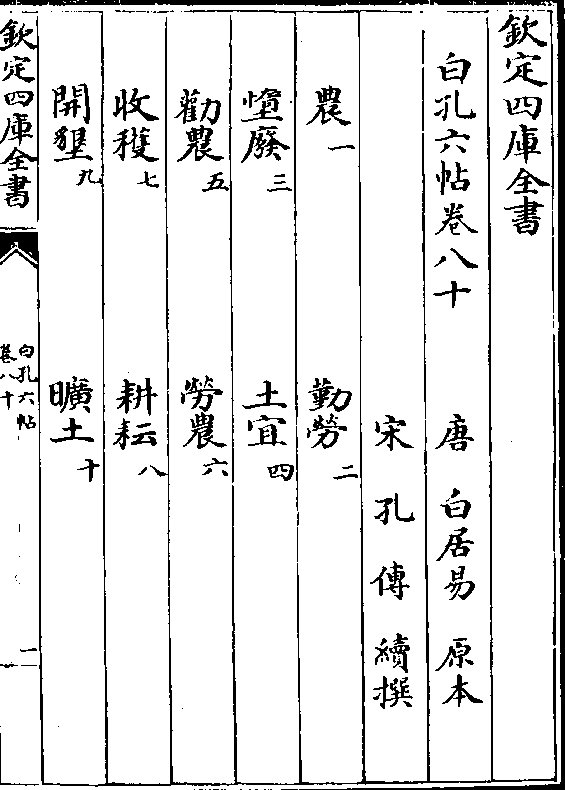 欽定四庫全書
白孔六帖卷八十　唐　白居易　原本
宋　孔　傳　續撰
農一　勤勞二
廢三　土宜四
勸農五　勞農六
收穫七　耕耘八
開墾九　曠土十
欽定四庫全書
白孔六帖
卷八十